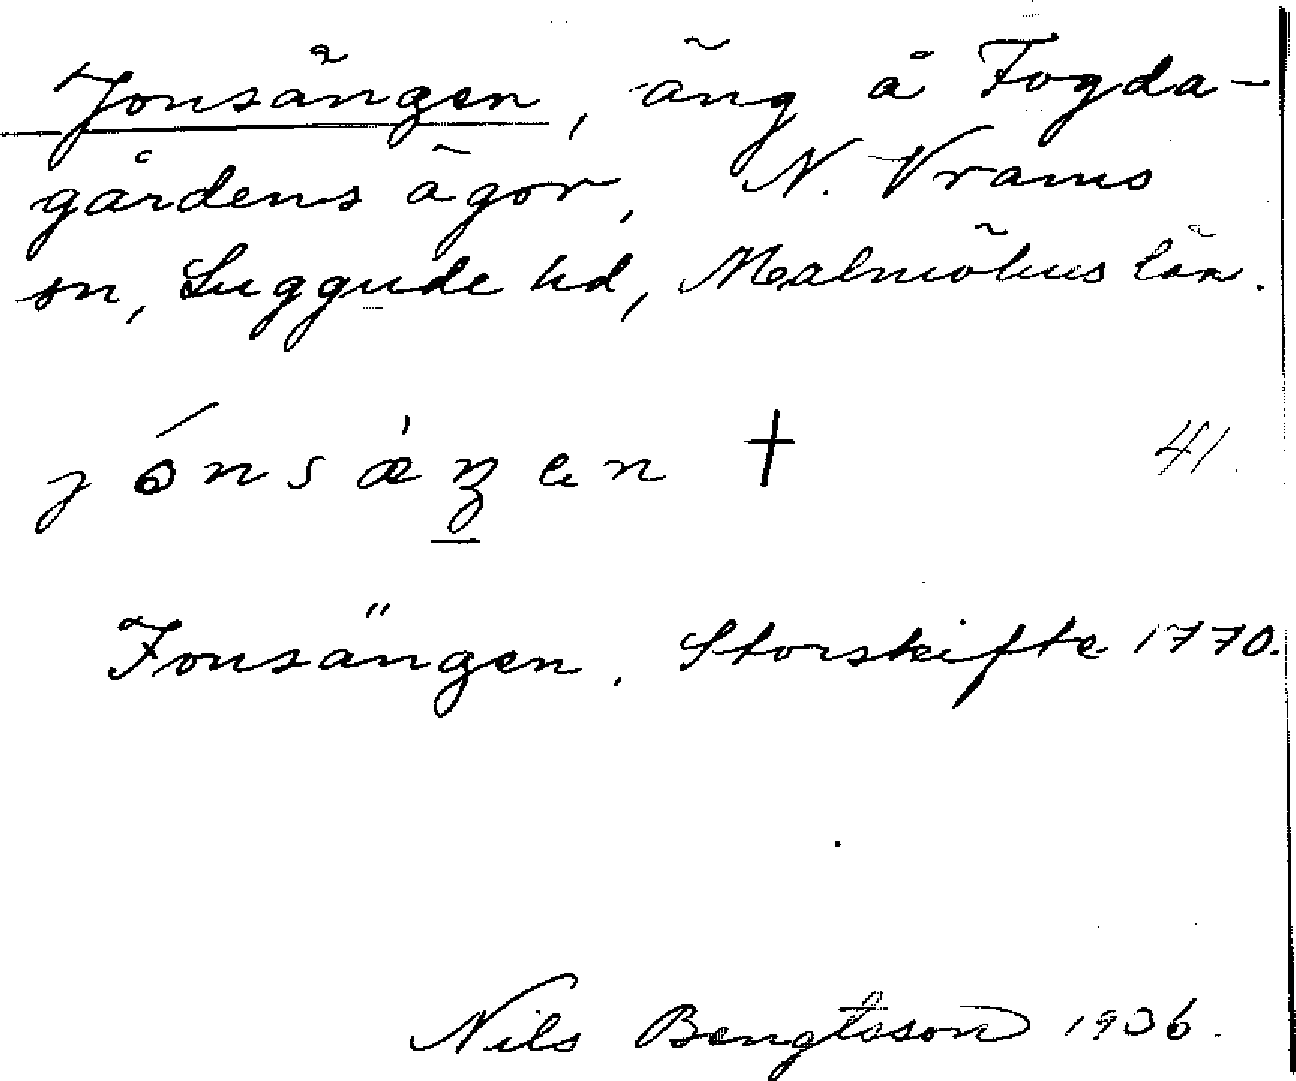 Jonsängen, äng å Fogda-
gårdens ägor, N. Vrams
sn, Luggude hd, Malmöhus län.
jónsǽŋen † 41.
Jonsängen. Storskifte 1770.
Nils Bengtsson 1936.